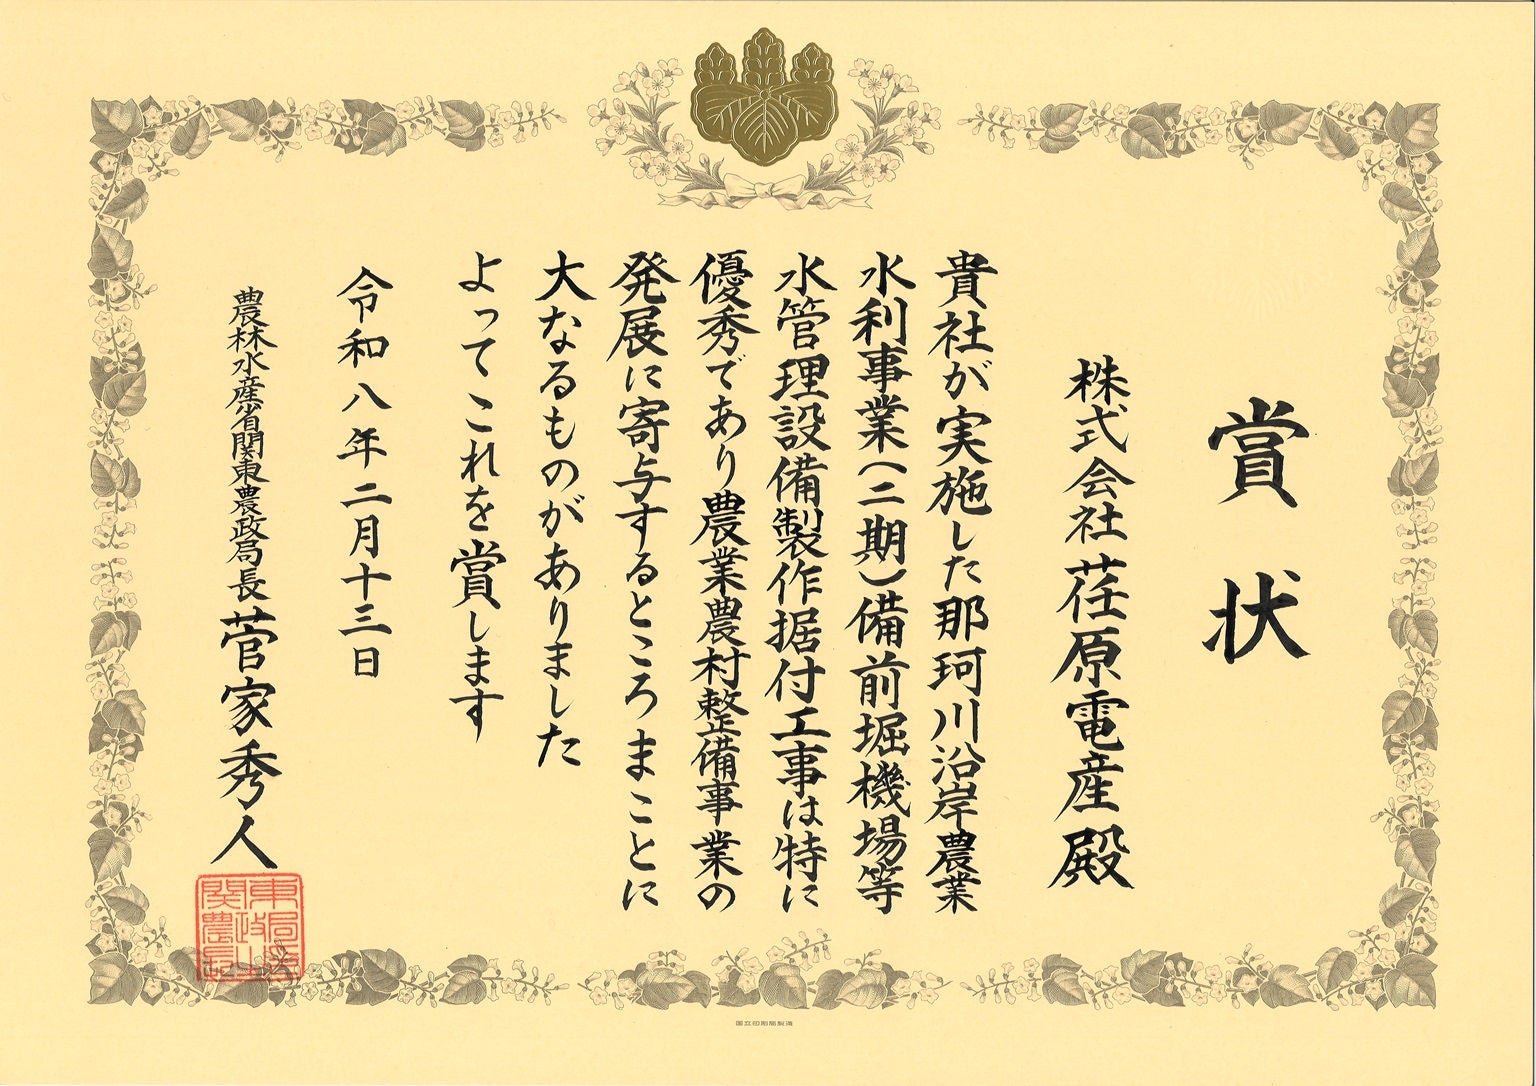 賞状
株式会社荏原電産殿
貴社が実施した那珂川沿岸農業
水利事業(二期)備前堀機場等
水管理設備製作据付工事は特に
優秀であり農業農村整備事業の
発展に寄与するところまことに
大なるものがありました
よってこれを賞します
令和八年二月十三日
農林水産省関東農政局長菅家秀人
国立印刷局製造